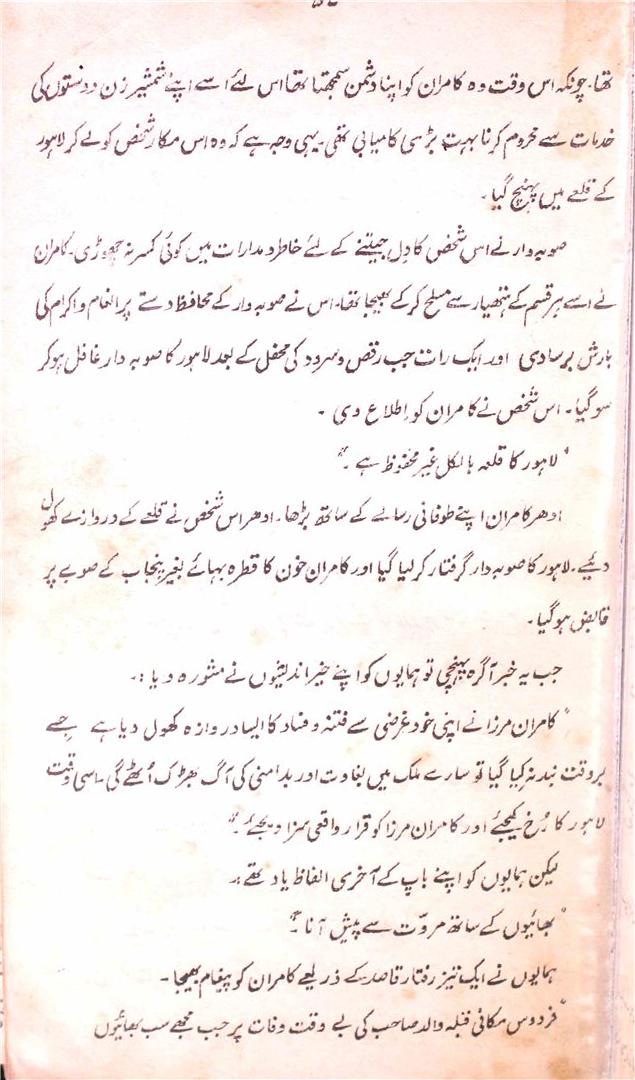 تھا۔ چونکہ اس وقت وہ کامران کو اپنا دشمن سمجھتا تھا اس لئے اسے اپنے شمشیر زن دوستوں کی
خدمات سے محروم کرنا بہت بڑی کامیابی تھی۔ یہی وجہ ہے کہ وہ اس مکار شخص کو لے کر لاہور
کے قلعے میں پہنچ گیا۔
صوبہ دار نے اس شخص کا دل جیتنے کے لئے خاطر و مدارات میں کوئی کسر نہ چھوڑی۔ کامران
نے اسے ہر قسم کے ہتھیار سے مسلح کر کے بھیجا تھا۔ اس نے صوبہ دار کے محافظ دستے پر انعام و اکرام کی
بارش برسا دی اور ایک رات جب رقص و سرود کی محفل کے بعد لاہور کا صوبہ دار غافل ہو کر
سو گیا۔ اس شخص نے کامران کو اطلاع دی ۔
"لاہور کا قلعہ بالکل غیر محفوظ ہے۔"
ادھر کامران اپنے طوفانی رسالے کے ساتھ بڑھا۔ ادھر اس شخص نے قلعے کے دروازے کھول
دئیے۔ لاہور کا صوبہ دار گرفتار کر لیا گیا اور کامران خون کا قطرہ بہائے بغیر پنجاب کے صوبے پر
قابض ہو گیا۔
جب یہ خبر آگرہ پہنچی تو ہمایوں کو اپنے خیر اندیشوں نے مشورہ دیا :۔
"کامران مرزا نے اپنی خود غرضی سے فتنہ و فساد کا ایسا دروازہ کھول دیا ہے جسے
بروقت بند نہ کیا گیا تو سارے ملک میں بغاوت اور بد امنی کی آگ بھڑک اُٹھے گی۔ اسی وقت
لاہور کا رُخ کیجئے اور کامران مرزا کو قرار واقعی سزا دیجئے۔"
لیکن ہمایوں کو اپنے باپ کے آخری الفاظ یاد تھے :۔
"بھائیوں کے ساتھ مروّت سے پیش آنا۔"
ہمایوں نے ایک تیز رفتار قاصد کے ذریعے کامران کو پیغام بھیجا۔
"فردوس مکانی قبلہ والد صاحب کی بے وقت وفات پر جب مجھے سب بھائیوں